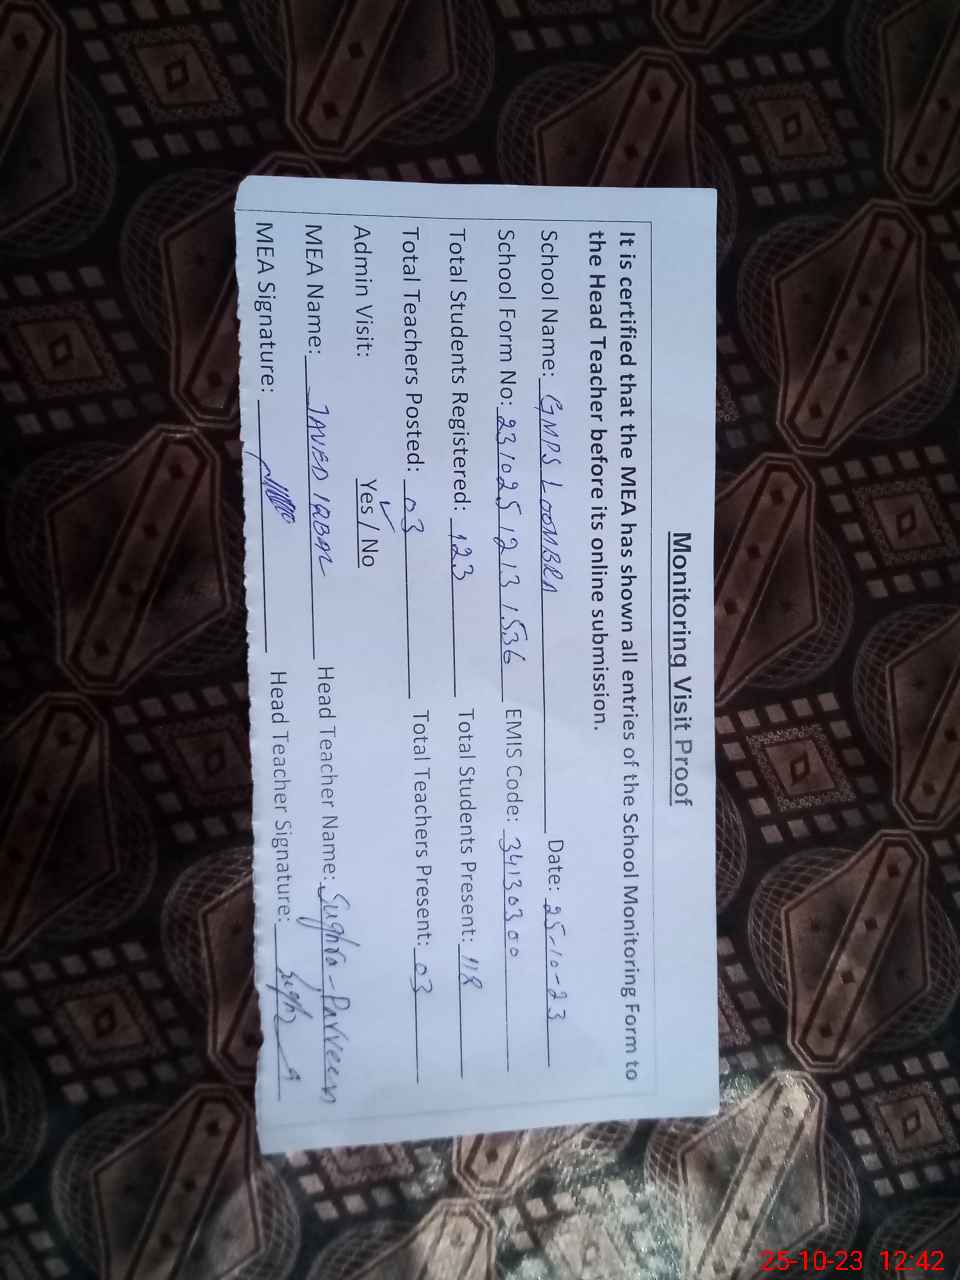 Monitoring Visit Proof
It is certified that the MEA has shown all entries of the School Monitoring Form to
the Head Teacher before its online submission.
School Name: GMPS LOOMBRA Date: 25-10-23
School Form No: 231025 1213 1536 EMIS Code: 34130300
Total Students Registered: 123 Total Students Present: 118
Total Teachers Posted: 03 Total Teachers Present: 03
Admin Visit: Yes / No
MEA Name: JAVED IQBAL Head Teacher Name: Sughra-Parveen
MEA Signature: Head Teacher Signature:
25-10-23 12:42